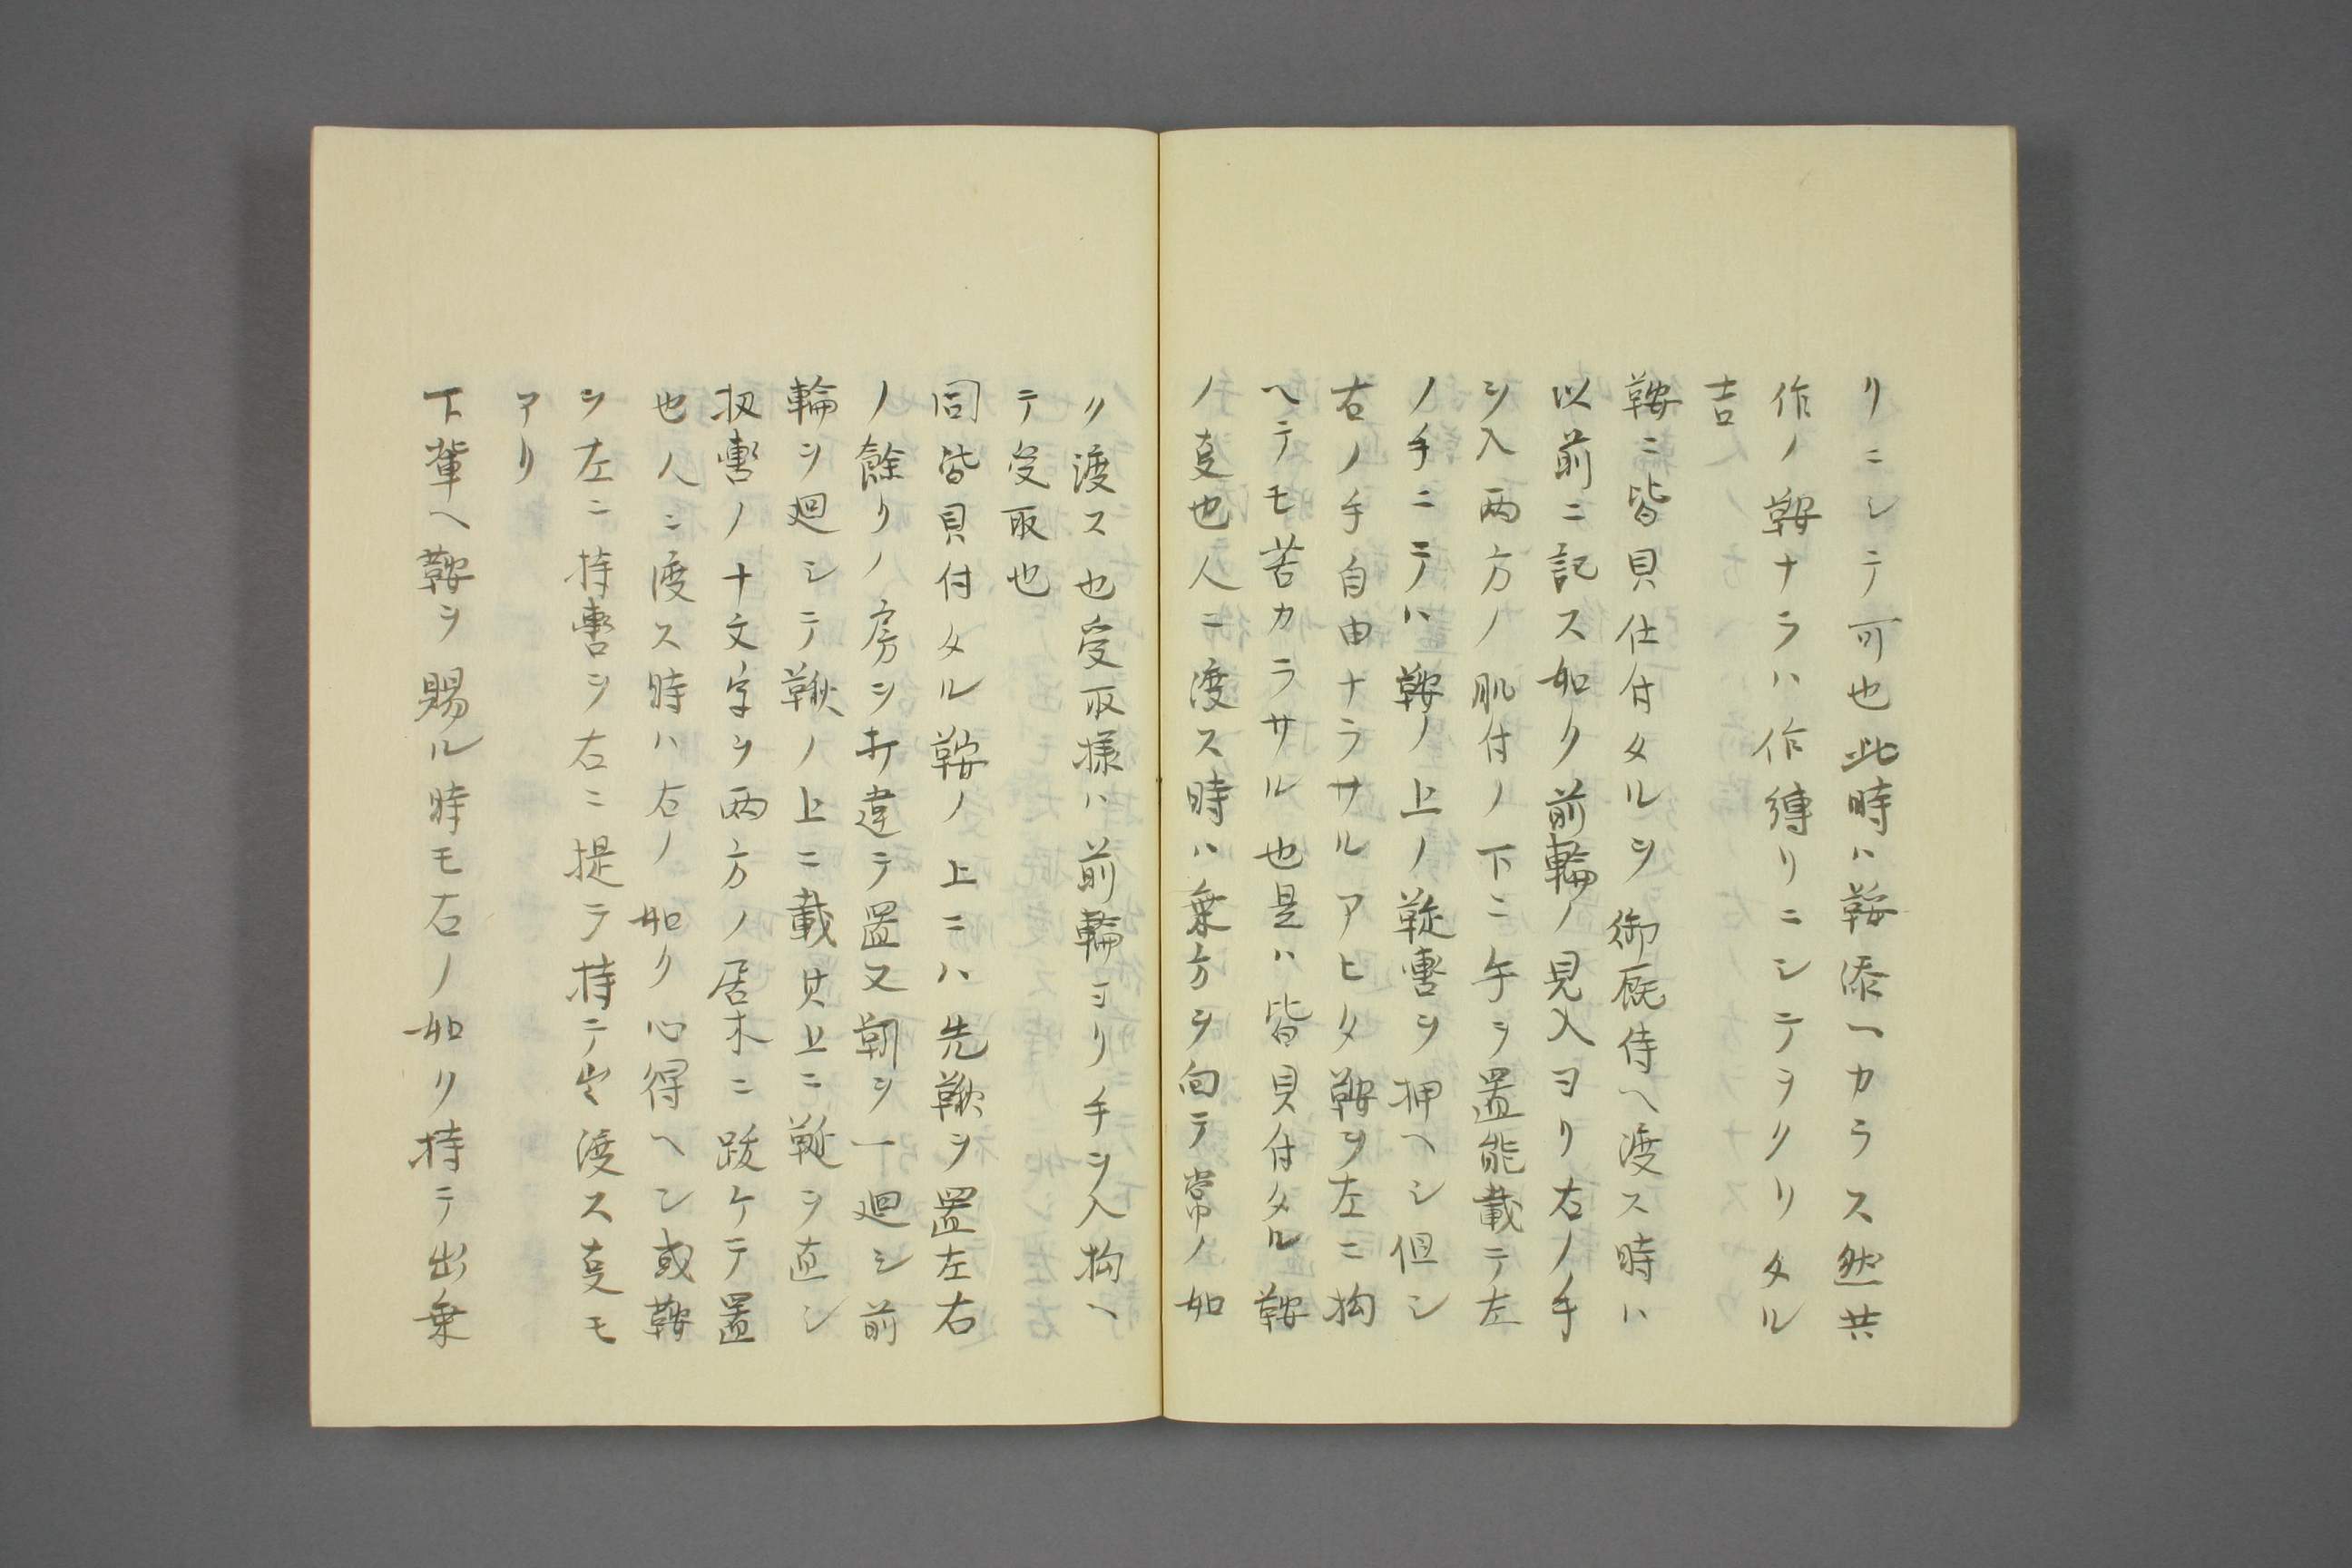 リニシテ可也此時ハ鞍添ヘカラス然共
作ノ鞍ナラハ作縛リニシテヲクリタル
吉
鞍ニ皆具仕付タルヲ御厩侍ヘ渡ス時ハ
以前ニ記ス如ク前輪ノ見入ヨリ右ノ手
ヲ入両方ノ肌付ノ下ニ手ヲ置能載テ左
ノ手ニテハ鞍ノ上ノ鞚轡ヲ押ヘシ但シ
右ノ手自由ナラサルアヒタ鞍ヲ左ニ拘
ヘテモ苦カラサル也是ハ皆具付タル鞍
ノ叓也人ニ渡ス時ハ乗方ヲ向テ常ノ如
ク渡ス也受取様ハ前輪ヨリ手ヲ入拘ヘ
テ受取也
同皆具付タル鞍ノ上ニハ先鞦ヲ置左右
ノ餘リノ房ヲ打違テ置又靷ヲ一廻シ前
輪ヲ廻シテ鞦ノ上ニ載其上ニ鞚ヲ直シ
扨轡ノ十文字ヲ両方ノ居木ニ跋ケテ置
也人ニ渡ス時ハ右ノ如ク心得ヘシ或鞍
ヲ左ニ持轡ヲ右ニ提テ持テ出渡ス叓モ
アリ
下輩ヘ鞍ヲ賜ル時モ右ノ如ク持テ出乗